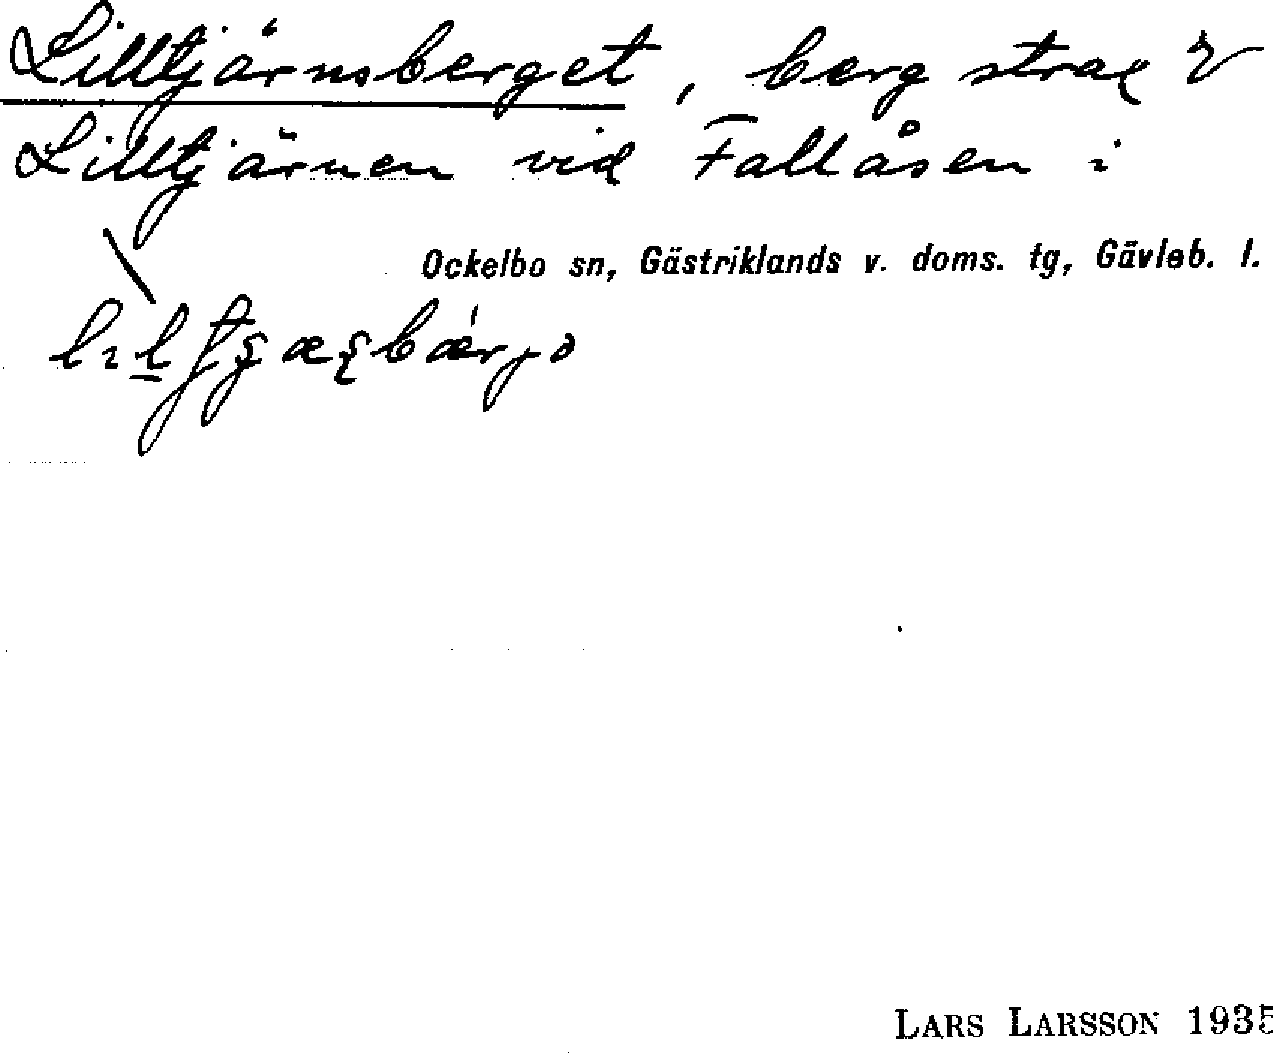 Lilltjärnsberget, berg strax V
Lilltjärnen vid Fallåsen i
Ockelbo sn, Gästriklands v. doms. tg, Gävleb. l.
LARS LARSSON 1935